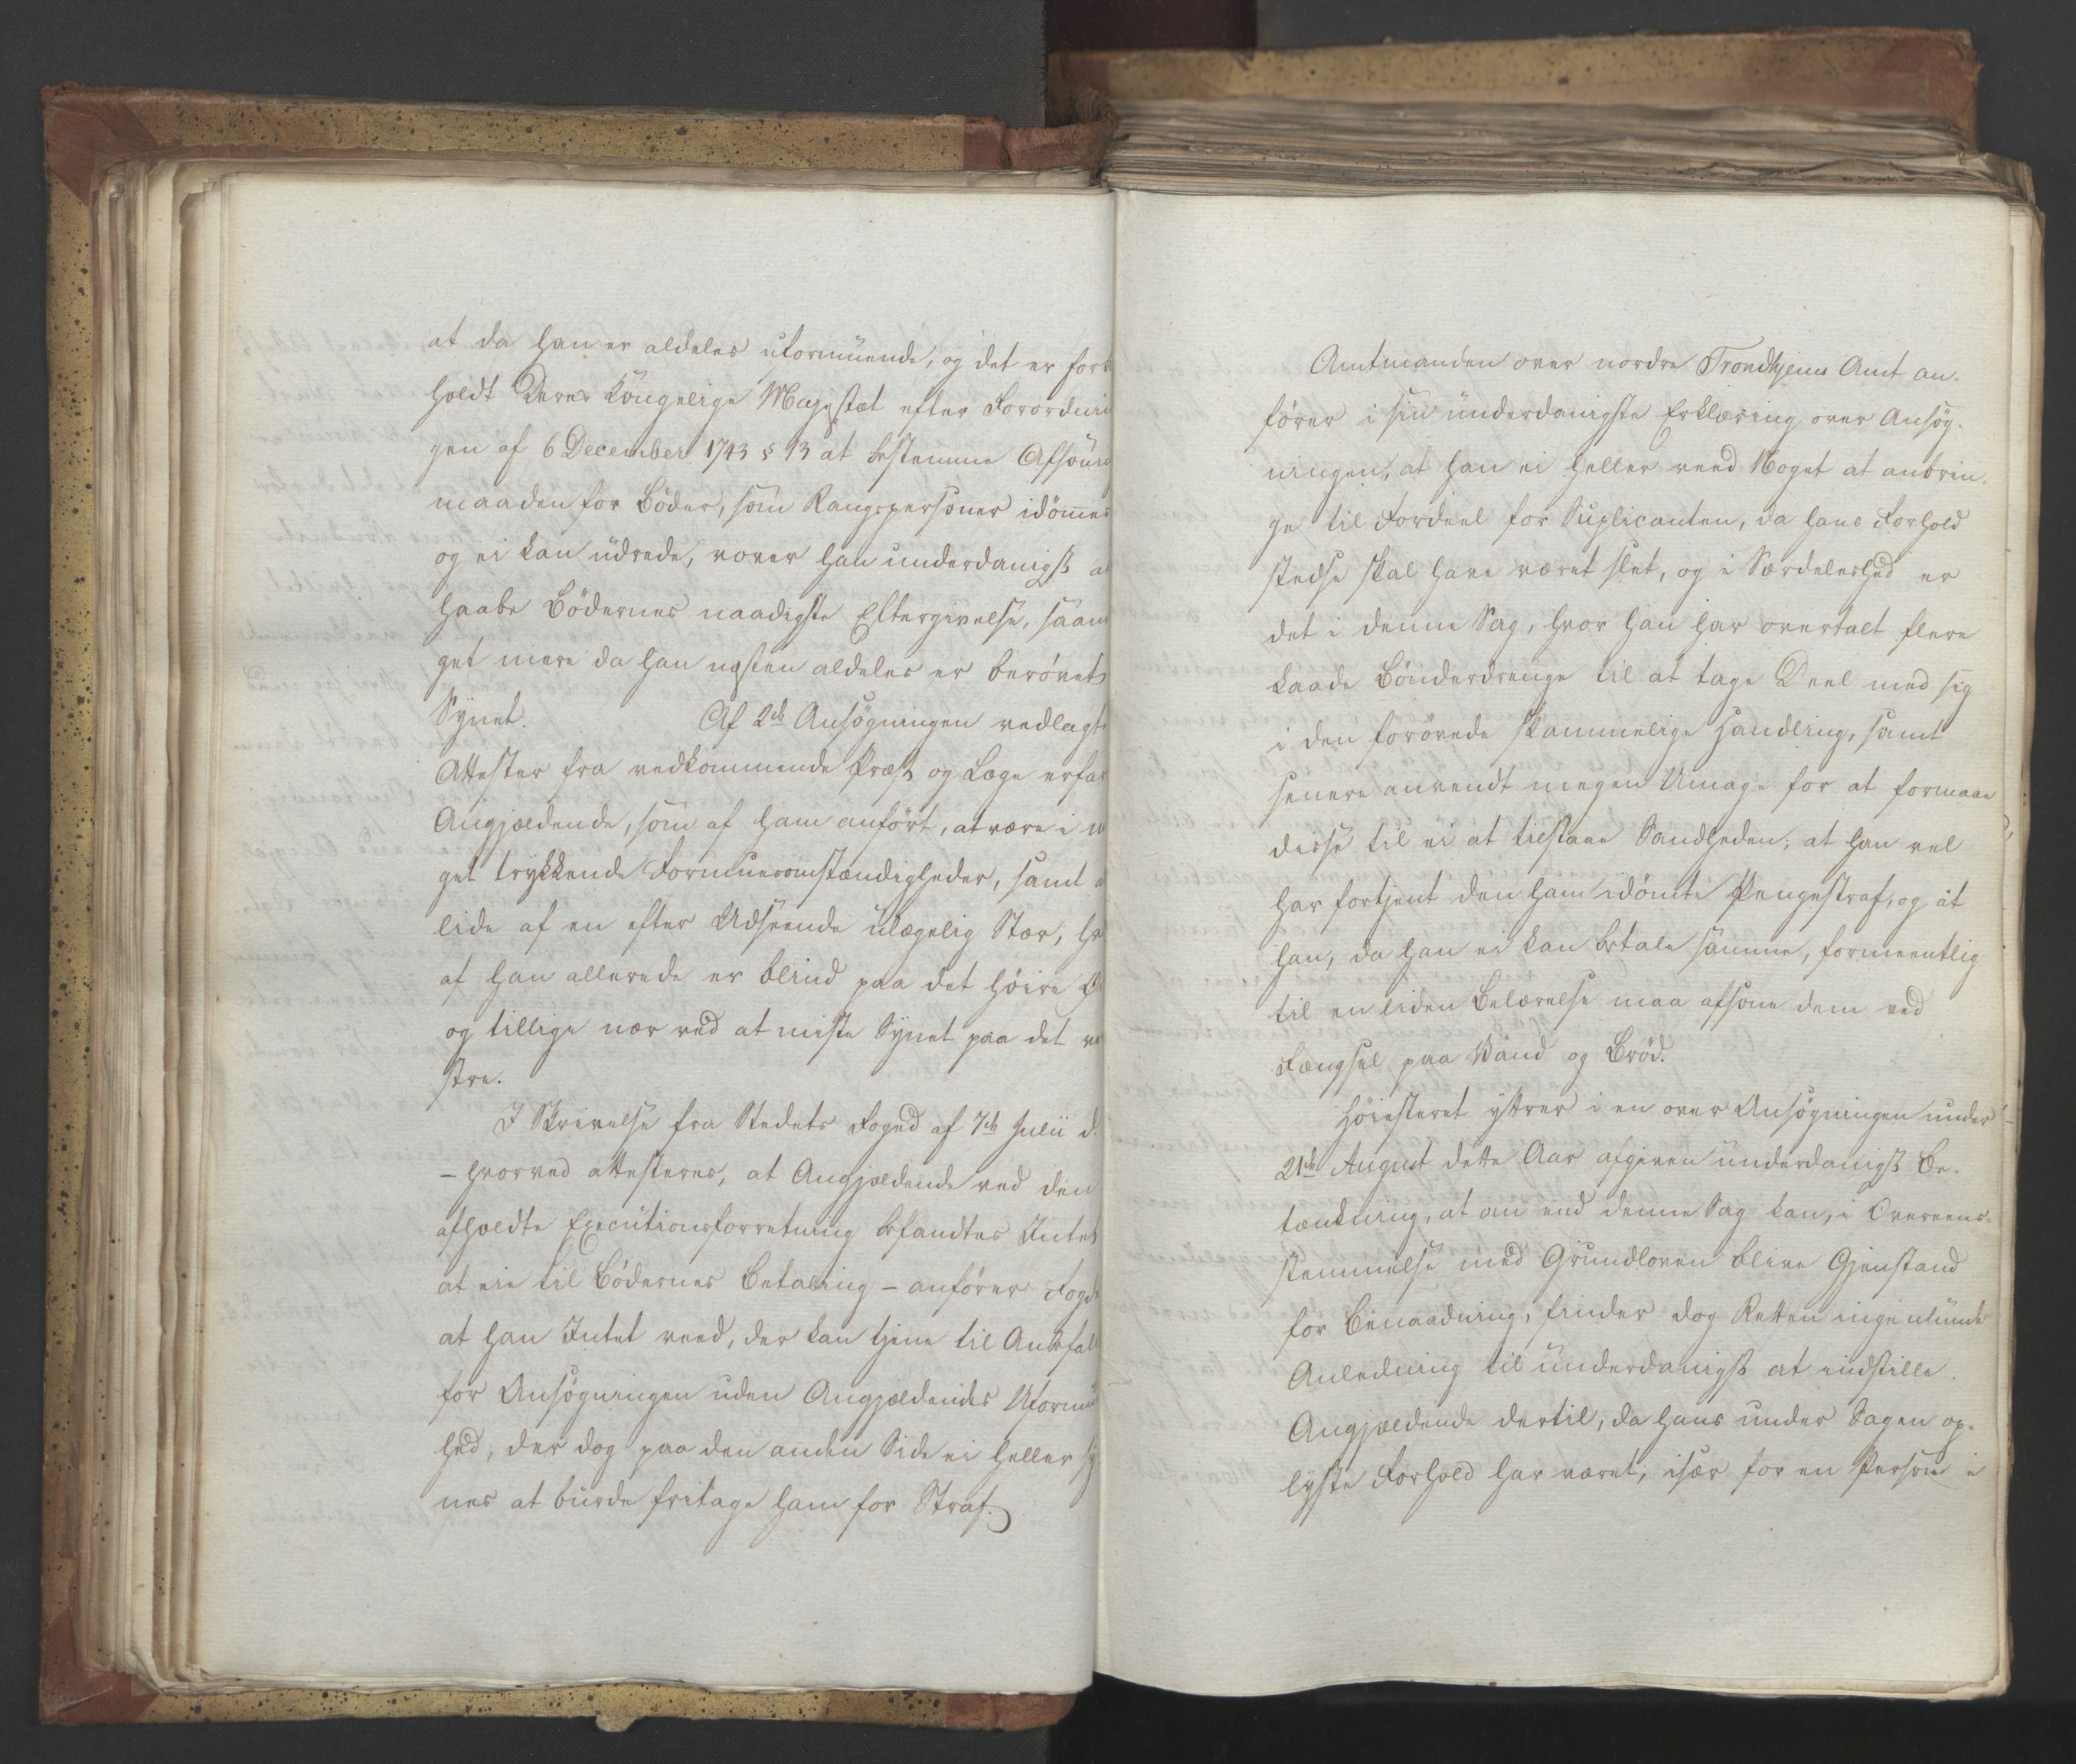 at da han er aldeles uformuende, og det er forbe
holdt Deres Kongelige Majestæt efter Forordnin
gen af 6 December 1743 § 13 at bestemme Afsonin
maaden for Böder, som Rangspersoner idömmes
og ei kan udrede, vover han underdanigst at
haabe Bödernes naadigste Eftergivelse, saam
get mere da han næsten aldeles er berövet
Synet. Af 2de Ansögningen vedlagte
Attester fra vedkommende Præst og Læge erfar
Angjældende, som af ham anfört, at være i m
get trykkende Formuesomstændigheder, samt a
lide af en efter Udseende ulægelig Stær, hv
af han allerede er blind paa det höire Ö
og tillige nær ved at miste Synet paa det ve
stre.
I Skrivelse fra Stedets Foged af 7de Julii d.
– hvorved attesteres, at Angjældende ved den
afholdte Executionsforretning befandtes Intet
at eie til Bödernes Betaling – anförer Foged
at han Intet veed, der kan tjene til Anbefal
for Ansögningen uden Angjældendes Uformu
hed, der dog paa den anden Side ei heller sy
nes at burde fritage ham for Straf.
Amtmanden over nordre Trondhjems Amt an-
förer i sin underdanigste Erklæring over Ansög-
ningen, at han ei heller veed Noget at anbrin-
ge til Fordeel for Suplicanten, da hans Forhold
stedse skal have været slet, og i Særdeleshed er
det i denne Sag, hvor han har overtalt flere
kaade Bönderdrenge til at tage Deel med sig
i den forövede skammelige Handling, samt
senere anvendt megen Umage for at formaae
disse til ei at tilstaae Sandheden; at han vel
har fortjent den ham idömte Pengestraf, og at
han, da han ei kan betale samme, formeentlig
til en liden Belærelse maa afsone dem ved
Fængsel paa Vand og Bröd.
Höiesteret yttrer i en over Ansögningen under
21de August dette Aar afgiven underdanigst Be-
tænkning, at om end denne Sag kan, i Overeens-
stemmelse med Grundloven blive Gjenstand
for Benaadning, finder dog Retten ingenlunde
Anledning til underdanigst at indstille
Angjældende dertil, da hans under Sagen op-
lyste Forhold har været, især for en Person i